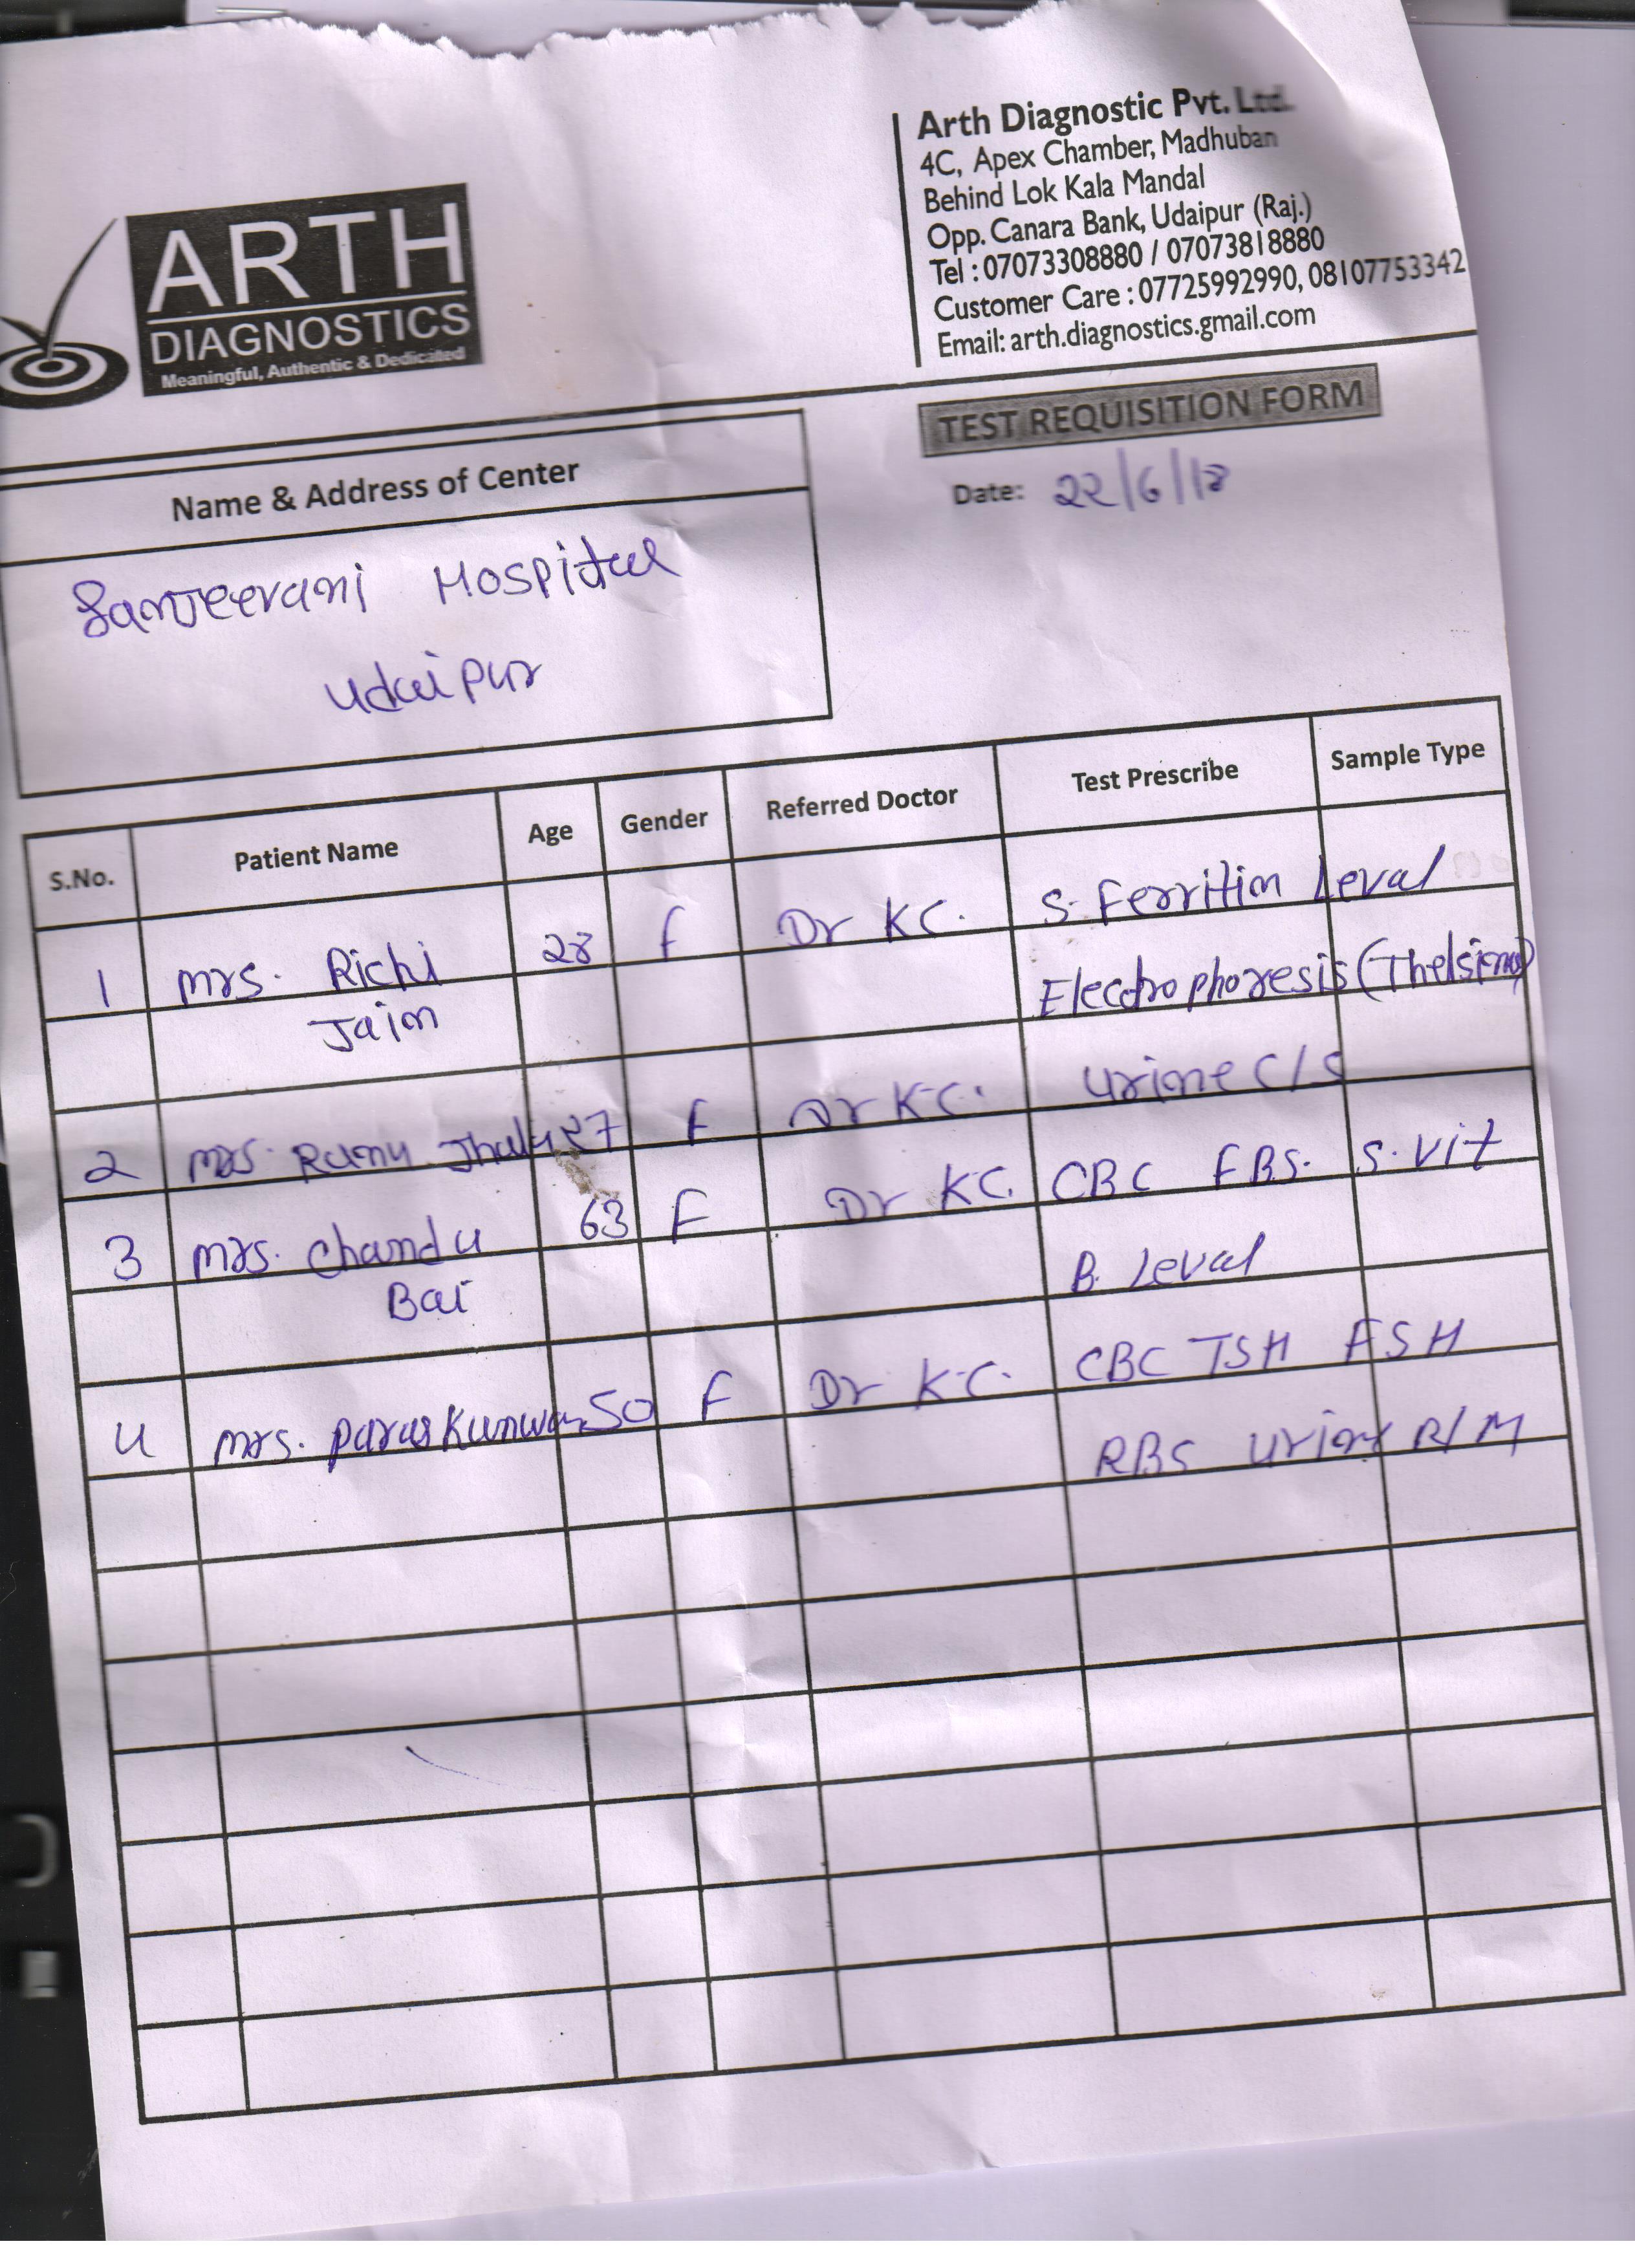 ARTH
DIAGNOSTICS
Meaningful, Authentic & Dedicated
Arth Diagnostic Pvt. Ltd.
4C, Apex Chamber, Madhuban
Behind Lok Kala Mandal
Opp. Canara Bank, Udaipur (Raj.)
Tel : 07073308880 / 07073818880
Customer Care : 07725992990, 08107753342
Email: arth.diagnostics.gmail.com
TEST REQUISITION FORM
Date: 22/6/18
Name & Address of Center
Sanjeevani Hospital
Udaipur
S.No. Patient Name Age Gender Referred Doctor Test Prescribe Sample Type
1 mrs. Richi 28 F Dr KC. S. Ferritin Leval
Jain Electrophoresis
2 mrs. Ranu 27 F Dr KC. Urine C/S
3 mrs. Chandu 63 F Dr KC. CBC FBS. S. Vit
Bai B. Leval
4 mrs. Paras Kunwar 50 F Dr K.C. CBC TSH FSH
RBS Urine R/M